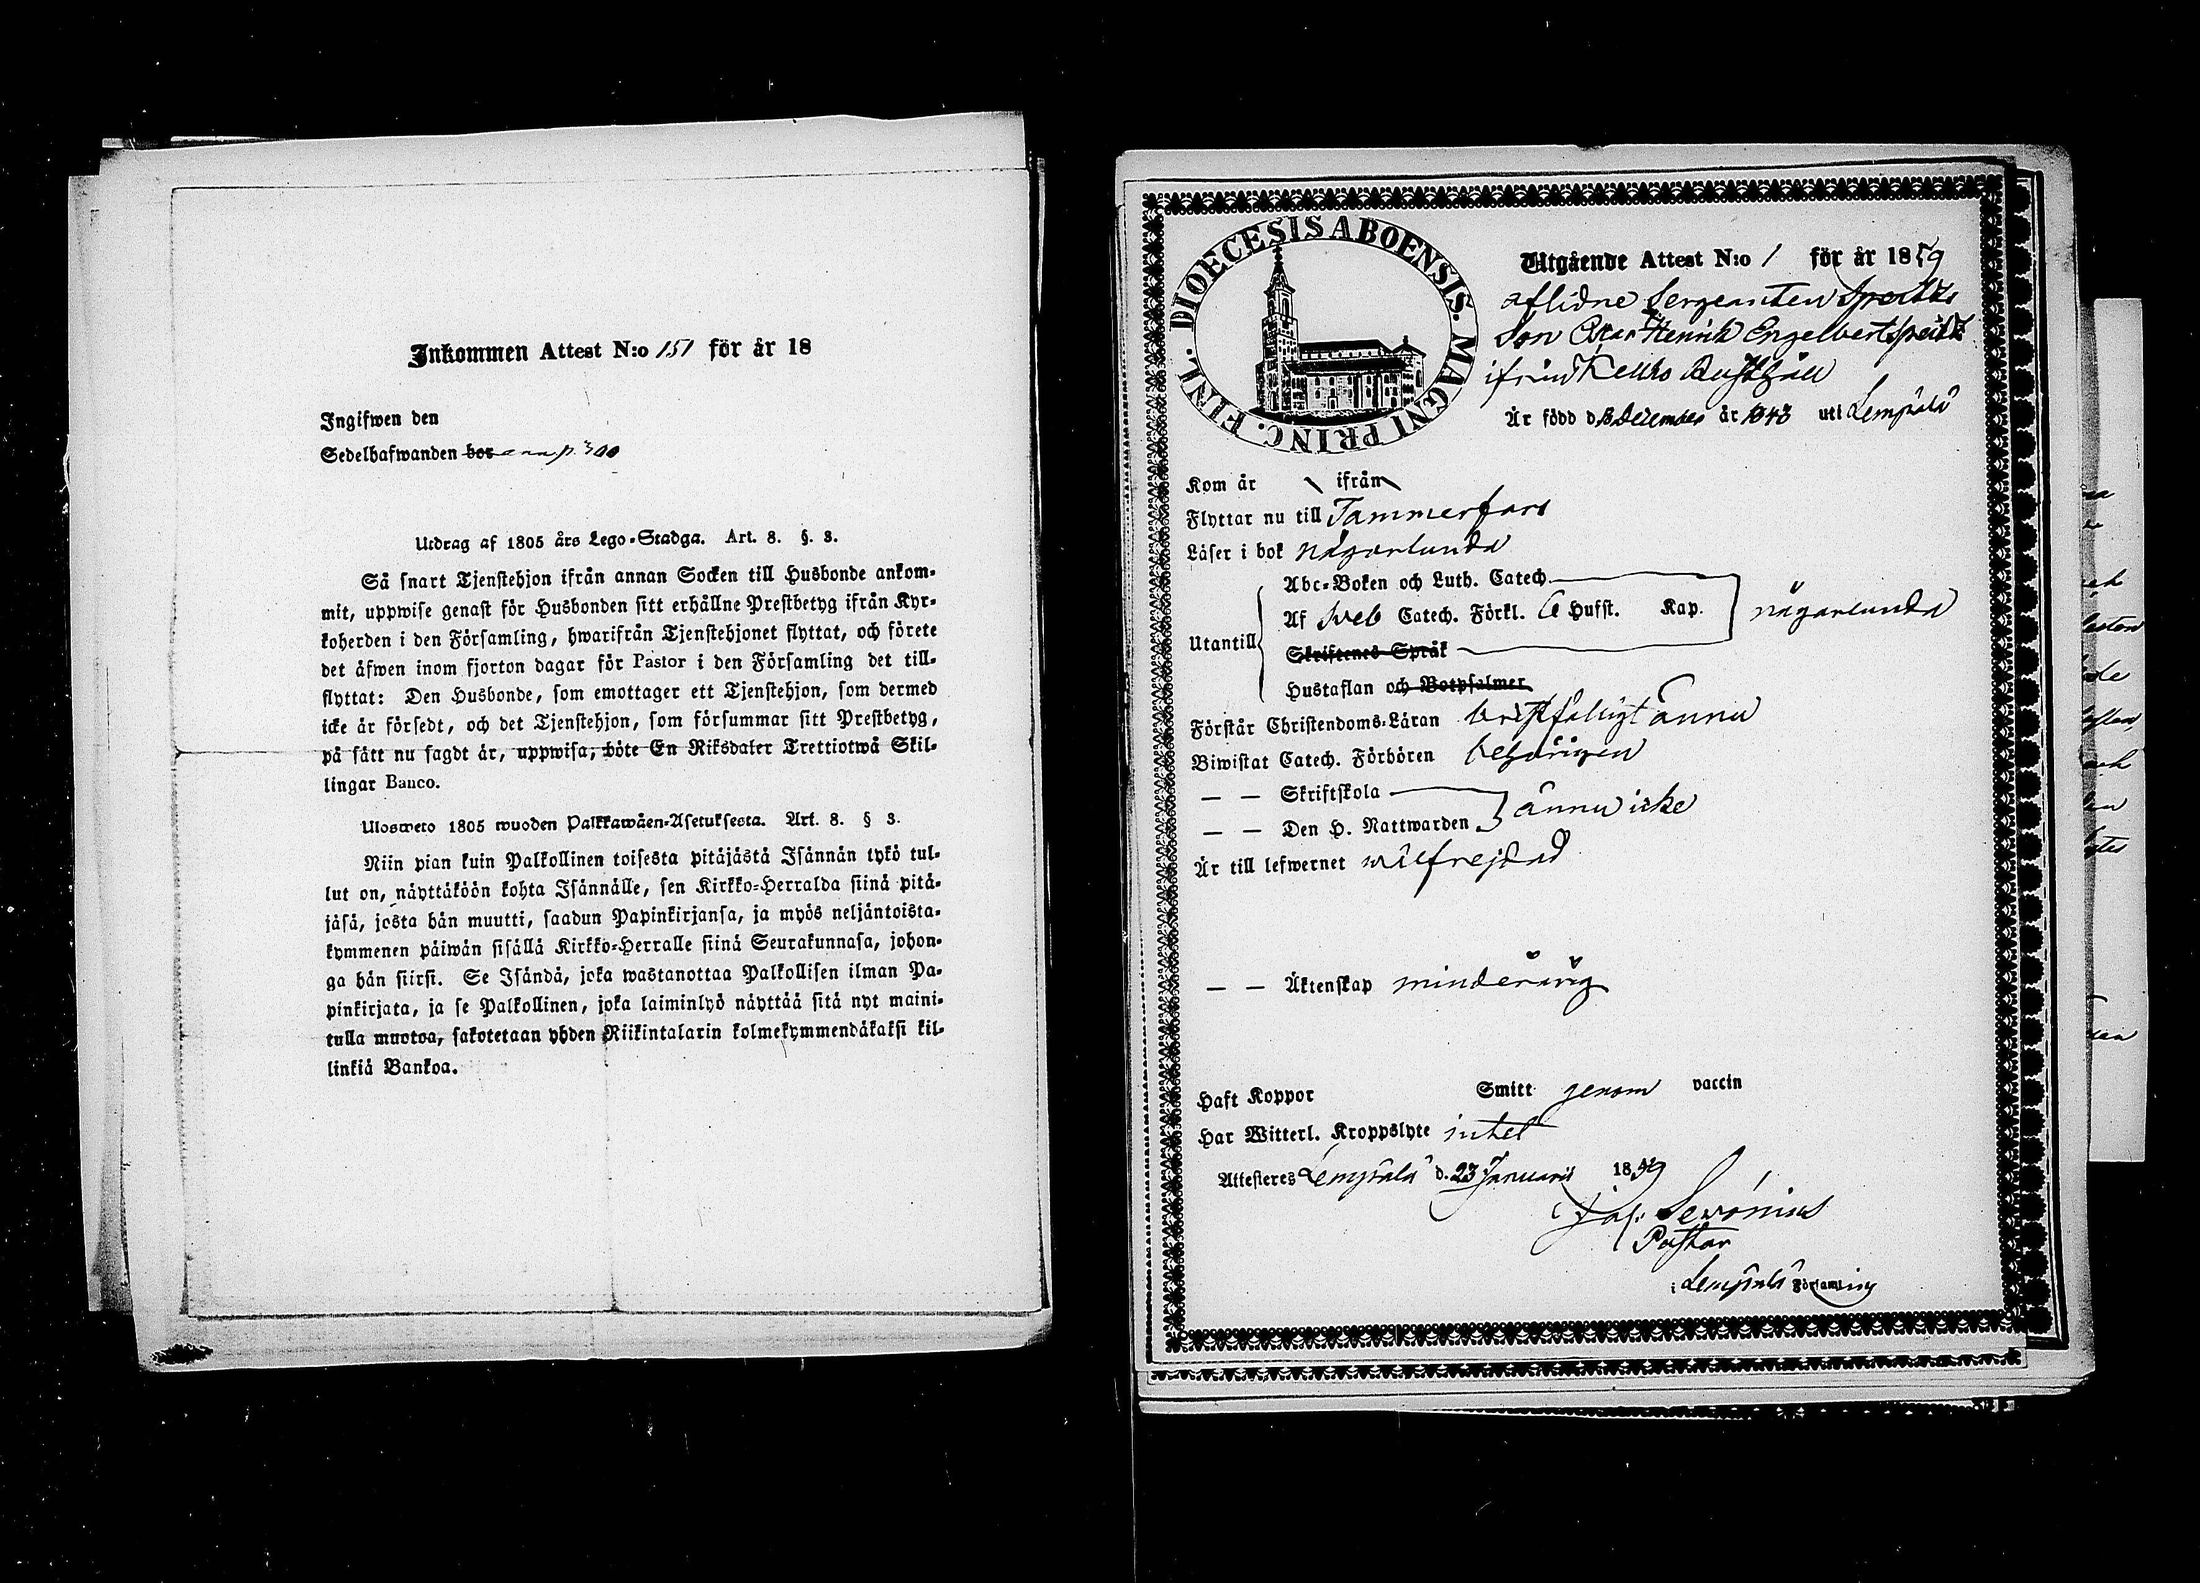 Inkommen Attest N:o 151 för år 18
Ingifwen den
Sedelhafwanden bor p. 300
Utdrag af 1805 års Lego-Stadga. Art. 8. §. 3.
Så snart Tjenstehjon ifrån annan Socken till Husbonde ankom-
mit, uppwise genast för Husbonden sitt erhållne Prestbetyg ifrån Kyr-
koherden i den Församling, hwarifrån Tjenstehjonet flyttat, och förete
det äfwen inom fjorton dagar för Pastor i den Församling det till-
flyttat: Den Husbonde, som emottager ett Tjenstehjon, som dermed
icke är försedt, och det Tjenstehjon, som försummar sitt Prestbetyg,
på sätt nu sagdt är, uppwisa, böte En Riksdaler Trettiotwå Skil-
lingar Banco.
Ulosweto 1805 wuoden Palkkawäen-Asetuksesta. Art. 8. § 3.
Niin pian kuin Palkollinen toisesta pitäjästä Isännän tykö tul-
lut on, näyttäköön kohta Isännälle, sen Kirkko-Herralda siinä pitä-
jäsä, josta hän muutti, saadun Papinkirjansa, ja myös neljäntoista-
kymmenen päiwän sisällä Kirkko-Herralle siinä Seurakunnasa, johon-
ga hän siirsi. Se Isändä, joka wastanottaa Palkollisen ilman Pa-
pinkirjata, ja se Palkollinen, joka laiminlyö näyttää sitä nyt maini-
tulla muotoa, sakotetaan yhden Riikintalarin kolmekymmendäkaksi kil-
linkiä Bankoa.
DIOECESIS ABOENSIS. MAGNI PRINC. FINL.
Utgående Attest N:o 1 för år 1859
aflidne Sergeanten
Son Oskar Henrik Engelbert
ifrån Rusthåll
Är född d. December år 1843 uti Lempälä
Kom år ifrån
Flyttar nu till Tammerfors
Läser i bok någorlunda
Abc-Boken och Luth. Catech.
Af Sveb Catech. Förkl. Hufst. Kap. någorlunda
Utantill
Skriftenes Språk
Hustaflan och Botpsalmer
Förstår Christendoms-Läran bristfälligt ännu
Biwistat Catech. Förhören behörigen
— — Skriftskola
— — Den H. Nattwarden ännu icke
Är till lefwernet wälfrejdad
— — Äktenskap minderårig
Haft Koppor Smitt genom vaccin
Har Witterl. Kroppslyte intet
Attesteres Lempälä d. 23 Januarii 1859
Jos: Serónius
Pastor
i Lempälä Församling